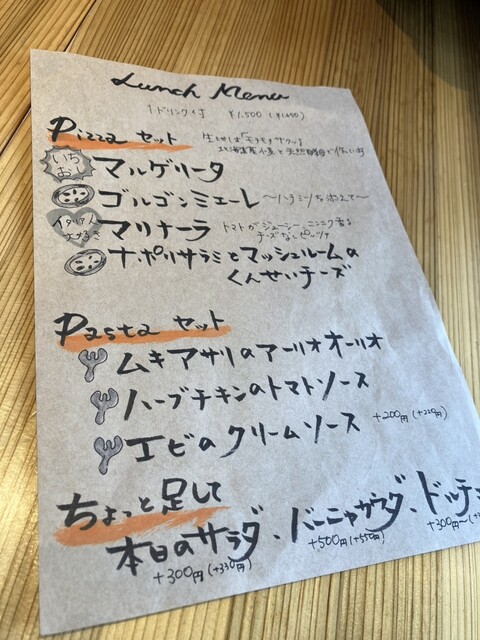 Lunch Menu
1ドリンク付 ¥1,500(¥1,650)
Pizza セット 生地は「モチモチサクッ」
北海道産小麦と天然酵母で作います
いちおし マルゲリータ
ゴルゴンミエーレ ~ハチミツを添えて~
イタリア人 大好き マリナーラ トマトがジューシー ニンニク香る
チーズなしピッツァ
ナポリサラミとマッシュルームの
くんせいチーズ
Pasta セット
ムキアサリのアーリオオーリオ
ハーブチキンのトマトソース
エビのクリームソース +200円(+220円)
ちょっと足して
本日のサラダ、バーニャカウダ、ドルチェ
+300円(+330円) +500円(+550円) +300円~(+3